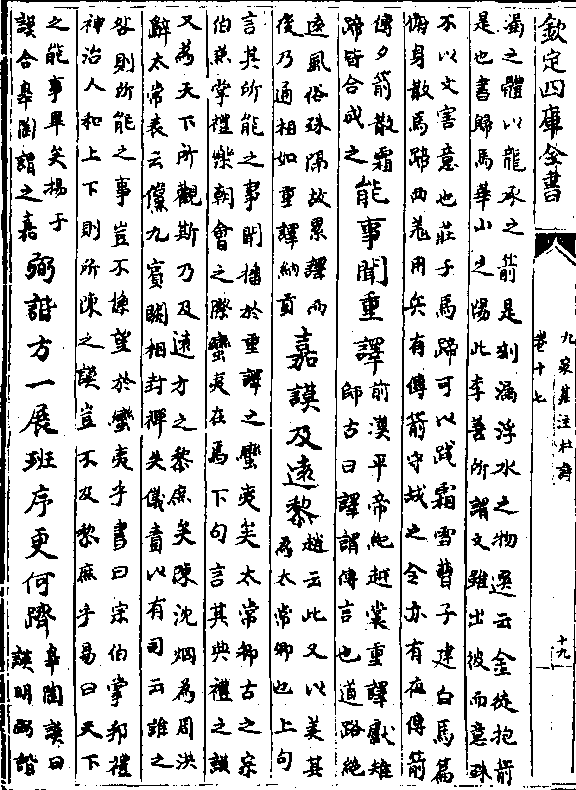 欽定四庫全書
九家集注杜詩
卷十七
十九
漏之體以龍承之箭是刻漏浮水之物選云金徒抱箭
是也書歸馬華山之陽此李善所謂文雖出彼而意殊
不以文害意也莊子馬蹄可以踐霜雪曹子建白馬篇
俯身散馬蹄西羌用兵有傳箭守城之令亦有夜傳箭
傳夕箭散霜
蹄皆合成之
能事聞重譯
前漢平帝紀越裳重譯獻雉
師古曰譯謂傳言也道路絶
遠風俗殊隔故累譯而
後乃通相如重譯納貢
嘉謨及遠黎
趙云此又以美其
為太常卿也上句
言其所能之事聞播於重譯之蠻夷矣太常卿古之宗
伯兼掌禮樂朝會之際蠻夷在焉下句言其典禮之謨
又為天下所觀斯乃及遠方之黎庶矣陳沈烱為周洪
辭太常表云儻九賓闕相封禪失儀責以有司云誰之
咎則所能之事豈不慊望於蠻夷乎書曰宗伯掌邦禮
神治人和上下則所陳之謨豈不及黎庶乎易曰天下
之能事畢矣揚子
謨合皋陶謂之嘉
弼諧方一展班序更何躋
皋陶謨曰
謨明弼諧